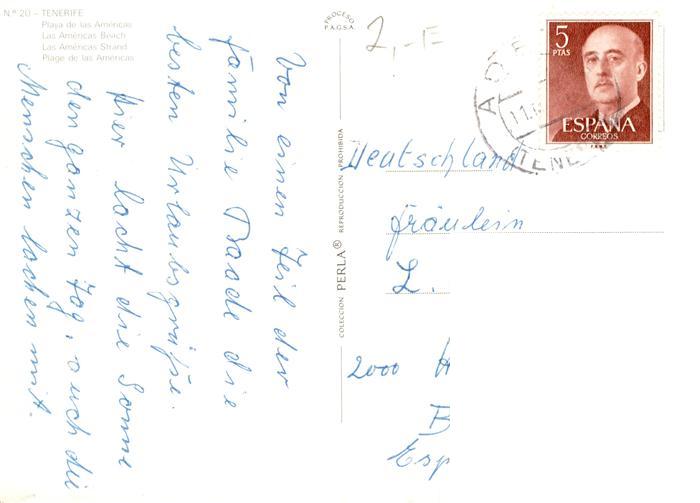 Nº 20 – TENERIFE
Playa de las Américas
Las Américas Beach
Las Américas Strand
Plage de las Américas
Von einen Teil der
familie Baade die
besten Urlaubsgrüße.
Hier lacht die Sonne
den ganzen Tag, auch die
Menschen lachen mit.
COLECCION PERLA® REPRODUCCION PROHIBIDA
PROCESO
P.A.G.S.A.
2,-E
5
PTAS
ESPAÑA
CORREOS
TENE
Deutschland
Fräulein
L.
2000 H
B
Esp